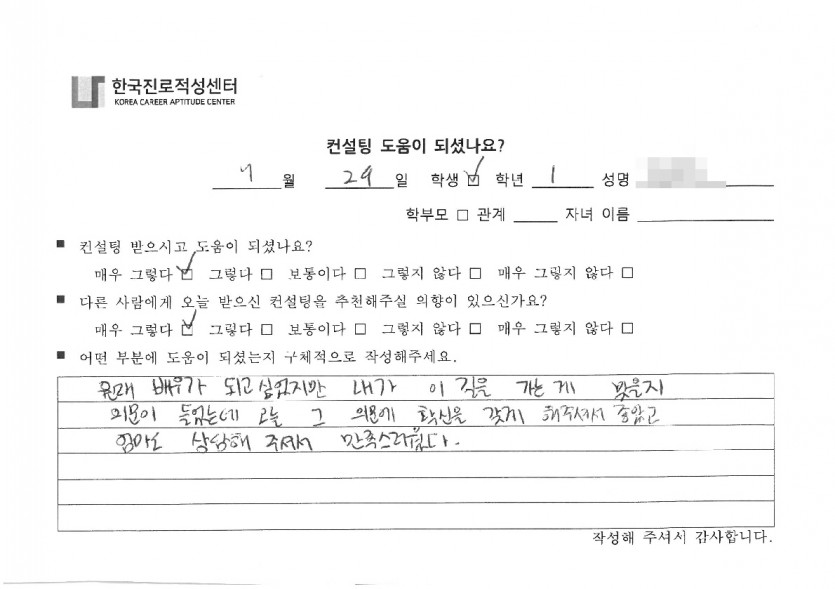 한국진로적성센터
KOREA CAREER APTITUDE CENTER
컨설팅 도움이 되셨나요?
7 월 29 일 학생 ☑ 학년 1 성명
학부모 □ 관계 자녀 이름
■ 컨설팅 받으시고 도움이 되셨나요?
매우 그렇다 ☑ 그렇다 □ 보통이다 □ 그렇지 않다 □ 매우 그렇지 않다 □
■ 다른 사람에게 오늘 받으신 컨설팅을 추천해주실 의향이 있으신가요?
매우 그렇다 ☑ 그렇다 □ 보통이다 □ 그렇지 않다 □ 매우 그렇지 않다 □
■ 어떤 부분에 도움이 되셨는지 구체적으로 작성해주세요.
원래 배우가 되고싶었지만 내가 이 길을 가는게 맞을지
의문이 들었는데 오늘 그 의문에 확신을 갖게 해주셔서 좋았고
엄마도 상담해 주셔서 만족스러웠다.
작성해 주셔서 감사합니다.